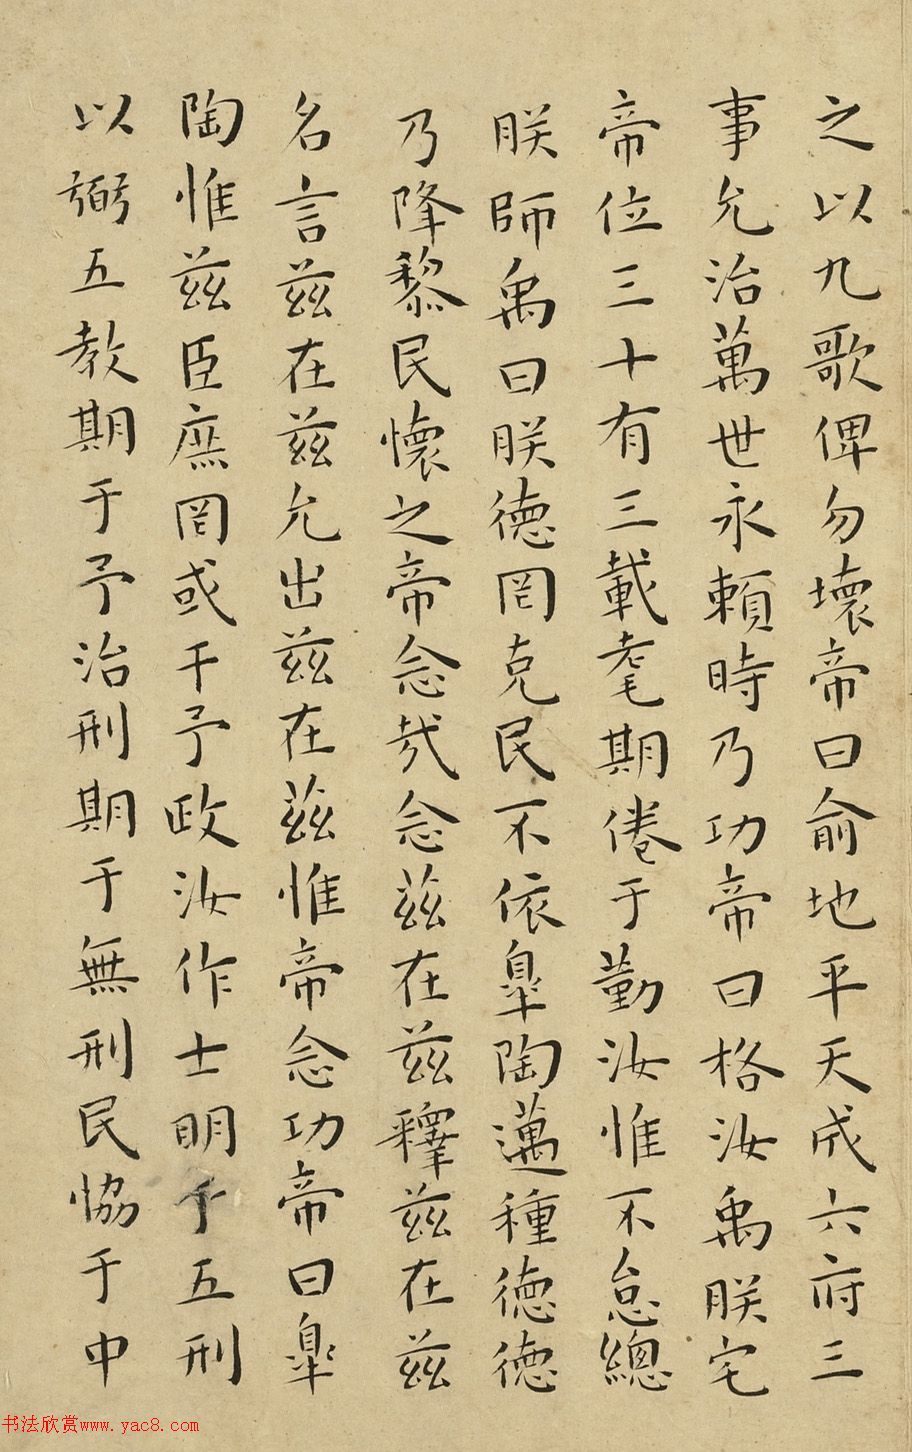 之以九歌俾勿壞帝曰俞地平天成六府三
事允治萬世永賴時乃功帝曰格汝禹朕宅
帝位三十有三載耄期倦于勤汝惟不怠總
朕師禹曰朕德罔克民不依皐陶邁種德德
乃降黎民懷之帝念哉念茲在茲釋茲在茲
名言茲在茲允出茲在茲惟帝念功帝曰皐
陶惟茲臣庶罔或干予政汝作士明于五刑
以弼五教期于予治刑期于無刑民恊于中
书法欣赏www.yac8.com